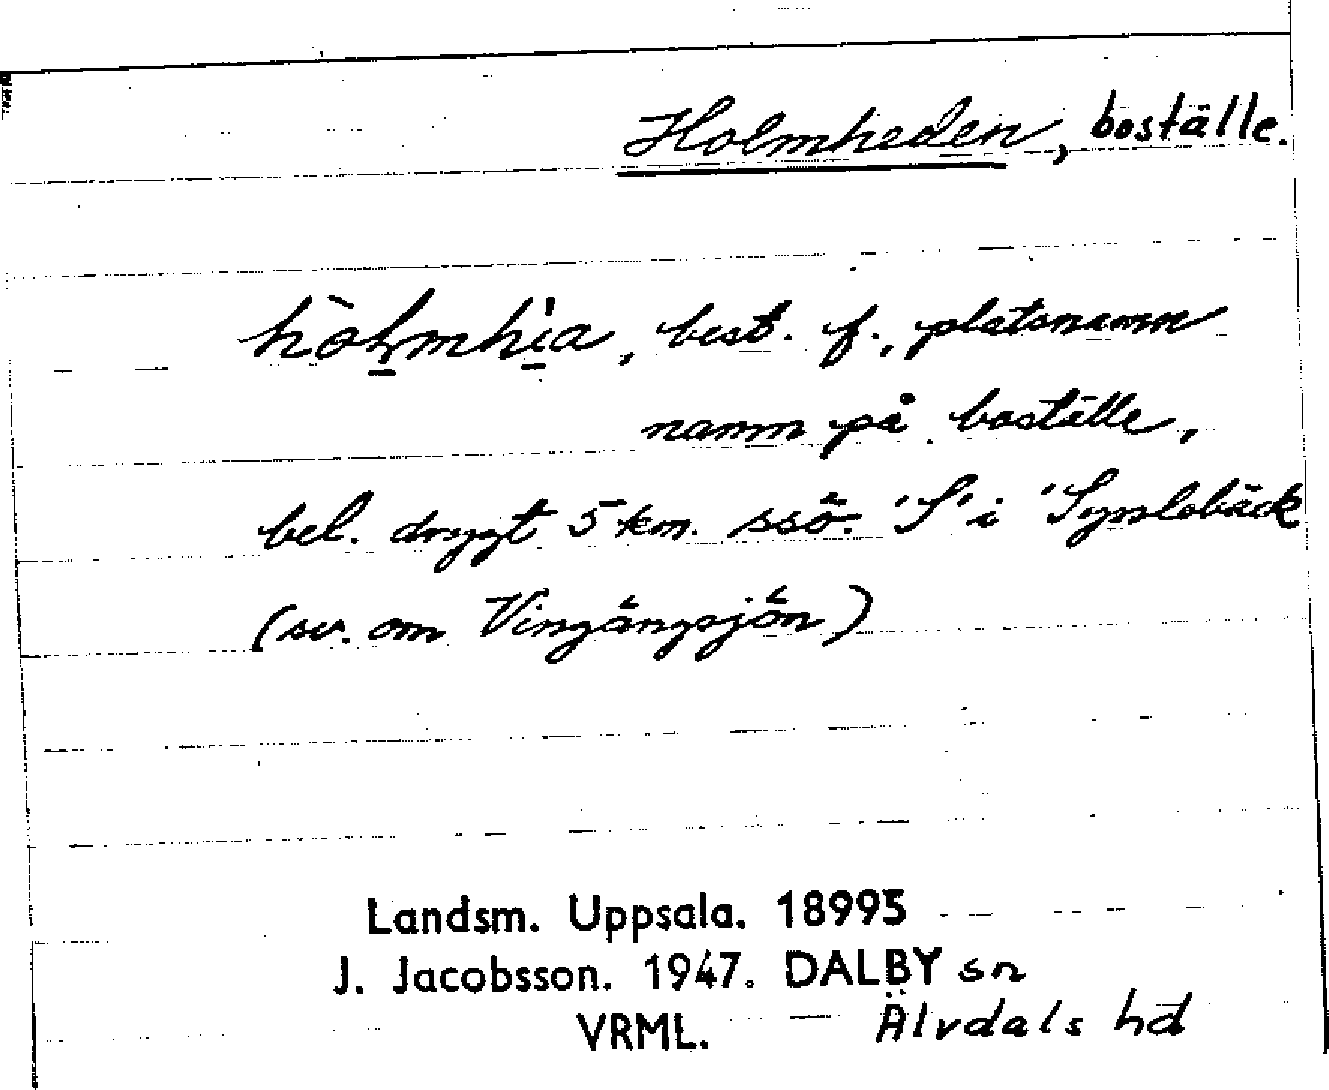 Holmheden, boställe.
hòlmhia, best. f., platsnamn
namn på boställe,
bel. drygt 5 km. ssö. 'S' i 'Sysslebäck
(sv. om Vingängsjön)
Landsm. Uppsala. 18995
J. Jacobsson. 1947. DALBY sn
VRML. Älvdals hd